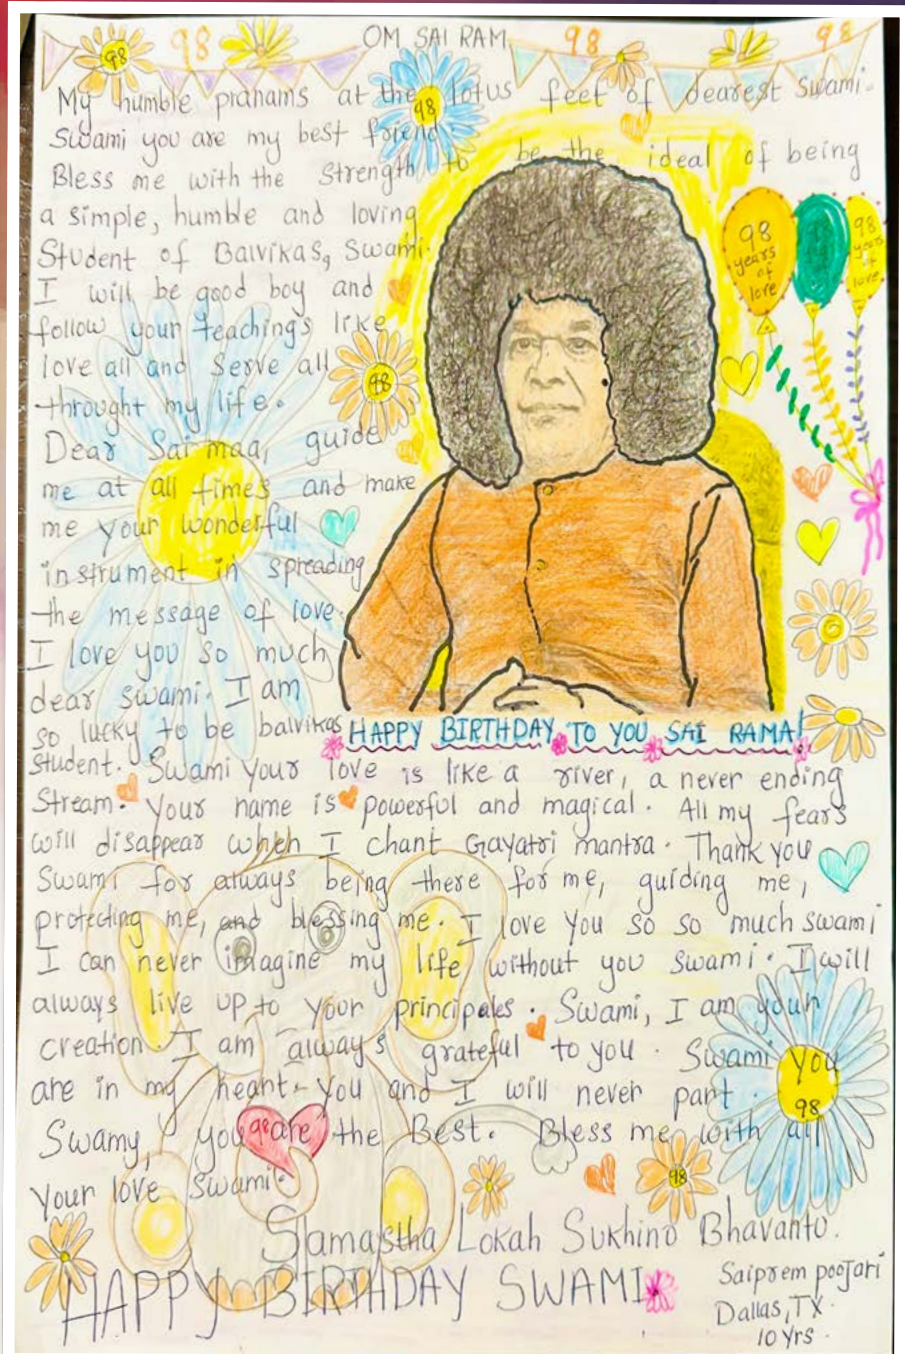 98 98 OM SAI RAM 98 98
My humble pranams at the lotus feet of dearest Swami.
98
Swami you are my best friend
Bless me with the strength to be the ideal of being
a simple, humble and loving
Student of Balvikas, Swami.
I will be good boy and
follow your teachings like
love all and serve all
throught my life.
98
Dear Sai maa, guide
me at all times and make
me your wonderful
instrument in spreading
the message of love.
I love you so much
dear swami. I am
so lucky to be balvikas
student.
98 years of love
98 years of love
HAPPY BIRTHDAY TO YOU SAI RAMA!
Swami your love is like a river, a never ending
Stream. your name is powerful and magical. All my fears
will disappear when I chant Gayatri mantra. Thank you
Swami for always being there for me, guiding me,
protecting me, and blessing me. I love you so so much swami
I can never imagine my life without you swami. I will
always live up to your principales. Swami, I am your
creation. I am always grateful to you. Swami you
are in my heart. you and I will never part.
98
Swamy, you are the Best. Bless me with all
98
your love Swami.
98
Samastha Lokah Sukhino Bhavantu.
HAPPY BIRTHDAY SWAMI
Saiprem poojari
Dallas, TX.
10 yrs.